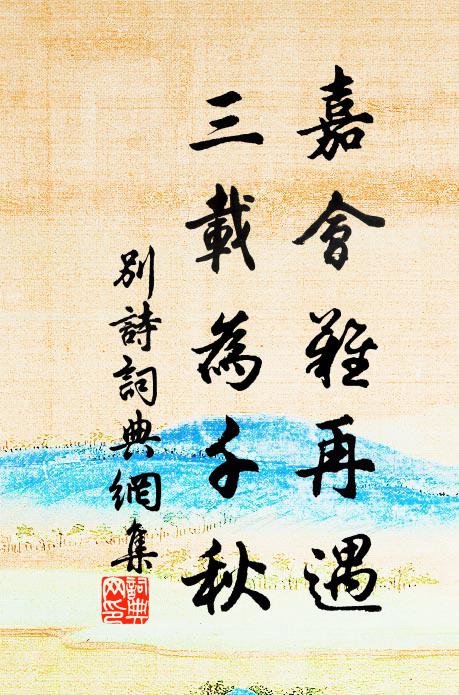 嘉會難再遇
三載為千秋
別詩詞典網集
詞典網印